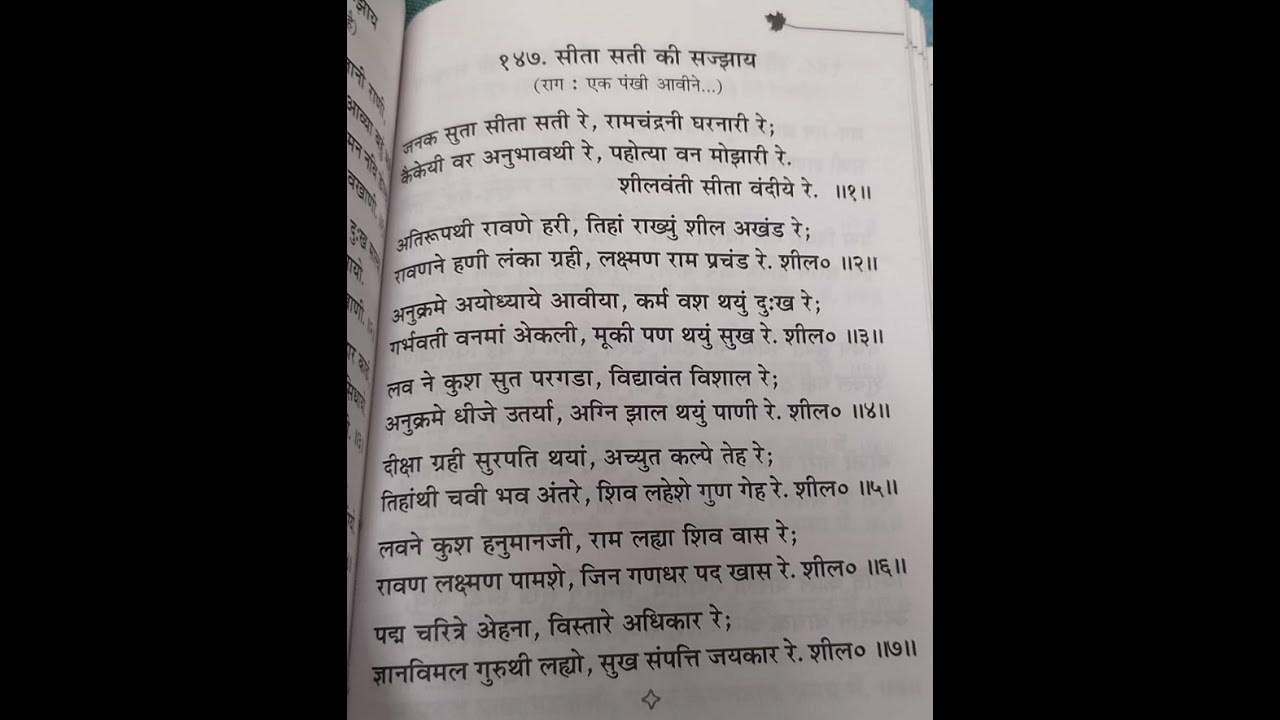 १४७. सीता सती की सज्झाय
(राग : एक पंखी आवीने...)
जनक सुता सीता सती रे, रामचंद्रनी घरनारी रे;
कैकेयी वर अनुभावथी रे, पहोत्या वन मोझारी रे.
शीलवंती सीता वंदीये रे. ॥१॥
अतिरूपथी रावणे हरी, तिहां राख्युं शील अखंड रे;
रावणने हणी लंका ग्रही, लक्ष्मण राम प्रचंड रे. शील० ॥२॥
अनुक्रमे अयोध्याये आवीया, कर्म वश थयुं दुःख रे;
गर्भवती वनमां अेकली, मूकी पण थयुं सुख रे. शील० ॥३॥
लव ने कुश सुत परगडा, विद्यावंत विशाल रे;
अनुक्रमे धीजे उतर्या, अग्नि झाल थयुं पाणी रे. शील० ॥४॥
दीक्षा ग्रही सुरपति थयां, अच्युत कल्पे तेह रे;
तिहांथी चवी भव अंतरे, शिव लहेशे गुण गेह रे. शील० ॥५॥
लवने कुश हनुमानजी, राम लह्या शिव वास रे;
रावण लक्ष्मण पामशे, जिन गणधर पद खास रे. शील० ॥६॥
पद्म चरित्रे अेहना, विस्तारे अधिकार रे;
ज्ञानविमल गुरुथी लह्यो, सुख संपत्ति जयकार रे. शील० ॥७॥